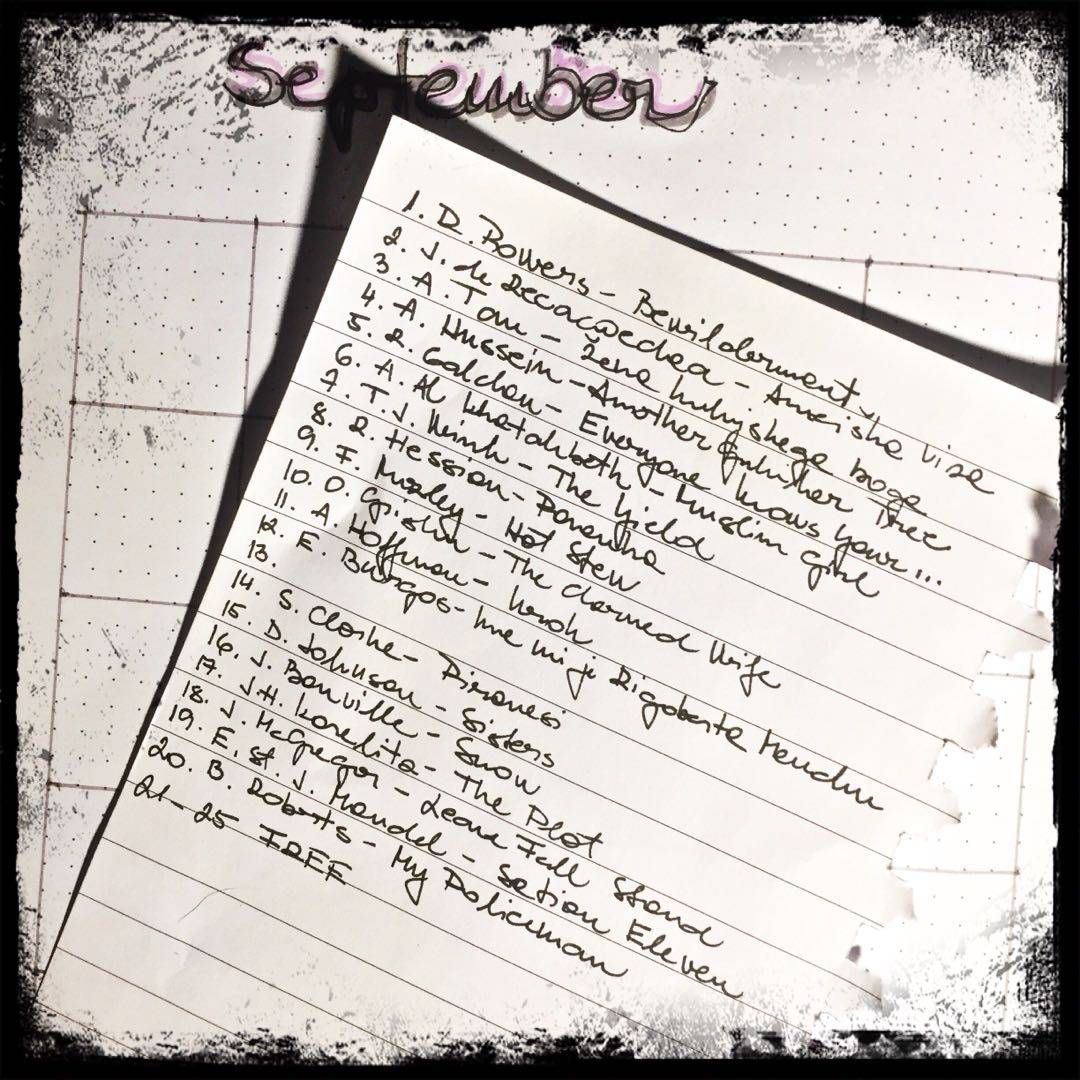 September
1. R. Powers - Bewilderment
2. J. de Recacoechea - Američka viza
3. A. Tan - Žena kuhinjskoga boga
4. A. Hussein - Another Gulmohar Tree
5. R. Galchen - Everyone knows your...
6. A. Al Khatahbeth - Muslim girl
7. T. J. Winch - The Yield
8. R. Hession - Panenka
9. F. Mozley - Hot Stew
10. O. Grushin - The charmed Wife
11. A. Hoffman -
12. E. Burgos - Ime mi je Rigoberta Menchu
13.
14. S. Clarke - Piranesi
15. D. Johnson - Sisters
16. J. Banville - Snow
17. J. H. Korelitz - The Plot
18. J. McGregor - Leane Fall Stand
19. E. St. J. Mandel - Sation Eleven
20. B. Roberts - My Policeman
21 - 25 FREE